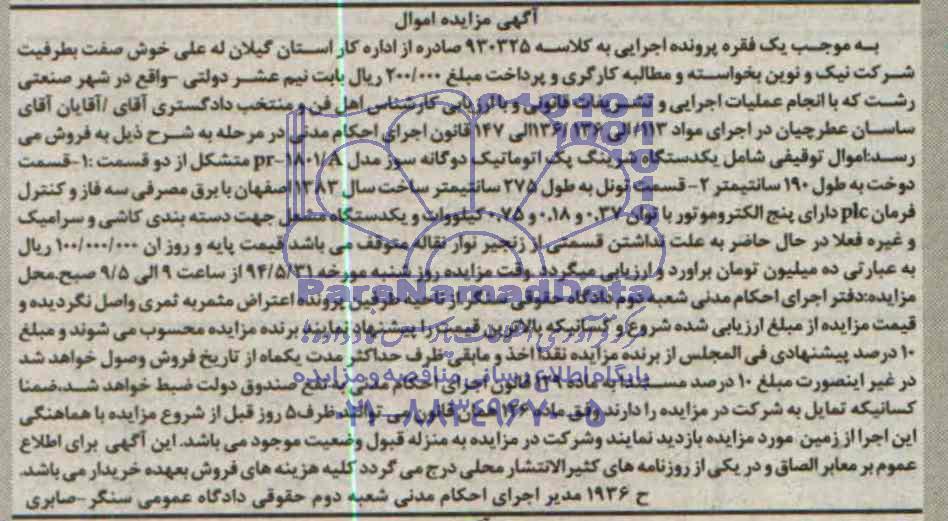 آگهی مزایده اموال
به موجب یک فقره پرونده اجرایی به کلاسه ۹۳۰۳۲۵ صادره از اداره کار استان گیلان له علی خوش صفت بطرفیت
شرکت نیک و نوین بخواسته و مطالبه کارگری و پرداخت مبلغ ۲۰۰/۰۰۰ ریال بابت نیم عشر دولتی -واقع در شهر صنعتی
رشت که با انجام عملیات اجرایی و تشریفات قانونی و با ارزیابی کارشناس اهل فن و منتخب دادگستری آقای /آقایان آقای
ساسان عطرچیان در اجرای مواد ۱۱۳ الی ۱۳۶ /۱۳۶الی ۱۴۷ قانون اجرای احکام مدنی در مرحله به شرح ذیل به فروش می
رسد:اموال توقیفی شامل یکدستگاه شرینگ پک اتوماتیک دوگانه سوز مدل pr-۱۸۰۱/A متشکل از دو قسمت :۱-قسمت
دوخت به طول ۱۹۰ سانتیمتر ۲- قسمت تونل به طول ۲۷۵ سانتیمتر ساخت سال ۱۳۸۳ اصفهان با برق مصرفی سه فاز و کنترل
فرمان plc دارای پنج الکتروموتور با توان ۰.۳۷ و ۰.۱۸ و ۰.۷۵ کیلووات و یکدستگاه مشعل جهت دسته بندی کاشی و سرامیک
و غیره فعلا در حال حاضر به علت نداشتن قسمتی از زنجیر نوار نقاله متوقف می باشد قیمت پایه و روز ان ۱۰۰/۰۰۰/۰۰۰ ریال
به عبارتی ده میلیون تومان براورد و ارزیابی میگردد. وقت مزایده روز شنبه مورخه ۹۴/۵/۳۱ از ساعت ۹ الی ۹/۵ صبح.محل
مزایده:دفتر اجرای احکام مدنی شعبه دوم دادگاه حقوقی سنگر از ناحیه طرفین پرونده اعتراض مثمربه ثمری واصل نگردیده و
قیمت مزایده از مبلغ ارزیابی شده شروع و کسانیکه بالاترین قیمت را پیشنهاد نمایند برنده مزایده محسوب می شوند و مبلغ
۱۰ درصد پیشنهادی فی المجلس از برنده مزایده نقدا اخذ و مابقی ظرف حداکثر مدت یکماه از تاریخ فروش وصول خواهد شد
در غیر اینصورت مبلغ ۱۰ درصد مستندا به ماده ۱۲۹ قانون اجرای احکام مدنی به نفع صندوق دولت ضبط خواهد شد.ضمنا
کسانیکه تمایل به شرکت در مزایده را دارند وفق ماده ۱۲۶ همان قانون می توانند ظرف۵ روز قبل از شروع مزایده با هماهنگی
این اجرا از زمین مورد مزایده بازدید نمایند وشرکت در مزایده به منزله قبول وضعیت موجود می باشد. این آگهی برای اطلاع
عموم بر معابر الصاق و در یکی از روزنامه های کثیرالانتشار محلی درج می گردد کلیه هزینه های فروش بعهده خریدار می باشد.
ح ۱۹۳۶ مدیر اجرای احکام مدنی شعبه دوم حقوقی دادگاه عمومی سنگر -صابری
ParsNamadData
پایگاه اطلاع رسانی مناقصه و مزایده
۰۲۱-۸۸۳۴۹۶۷۰-۵